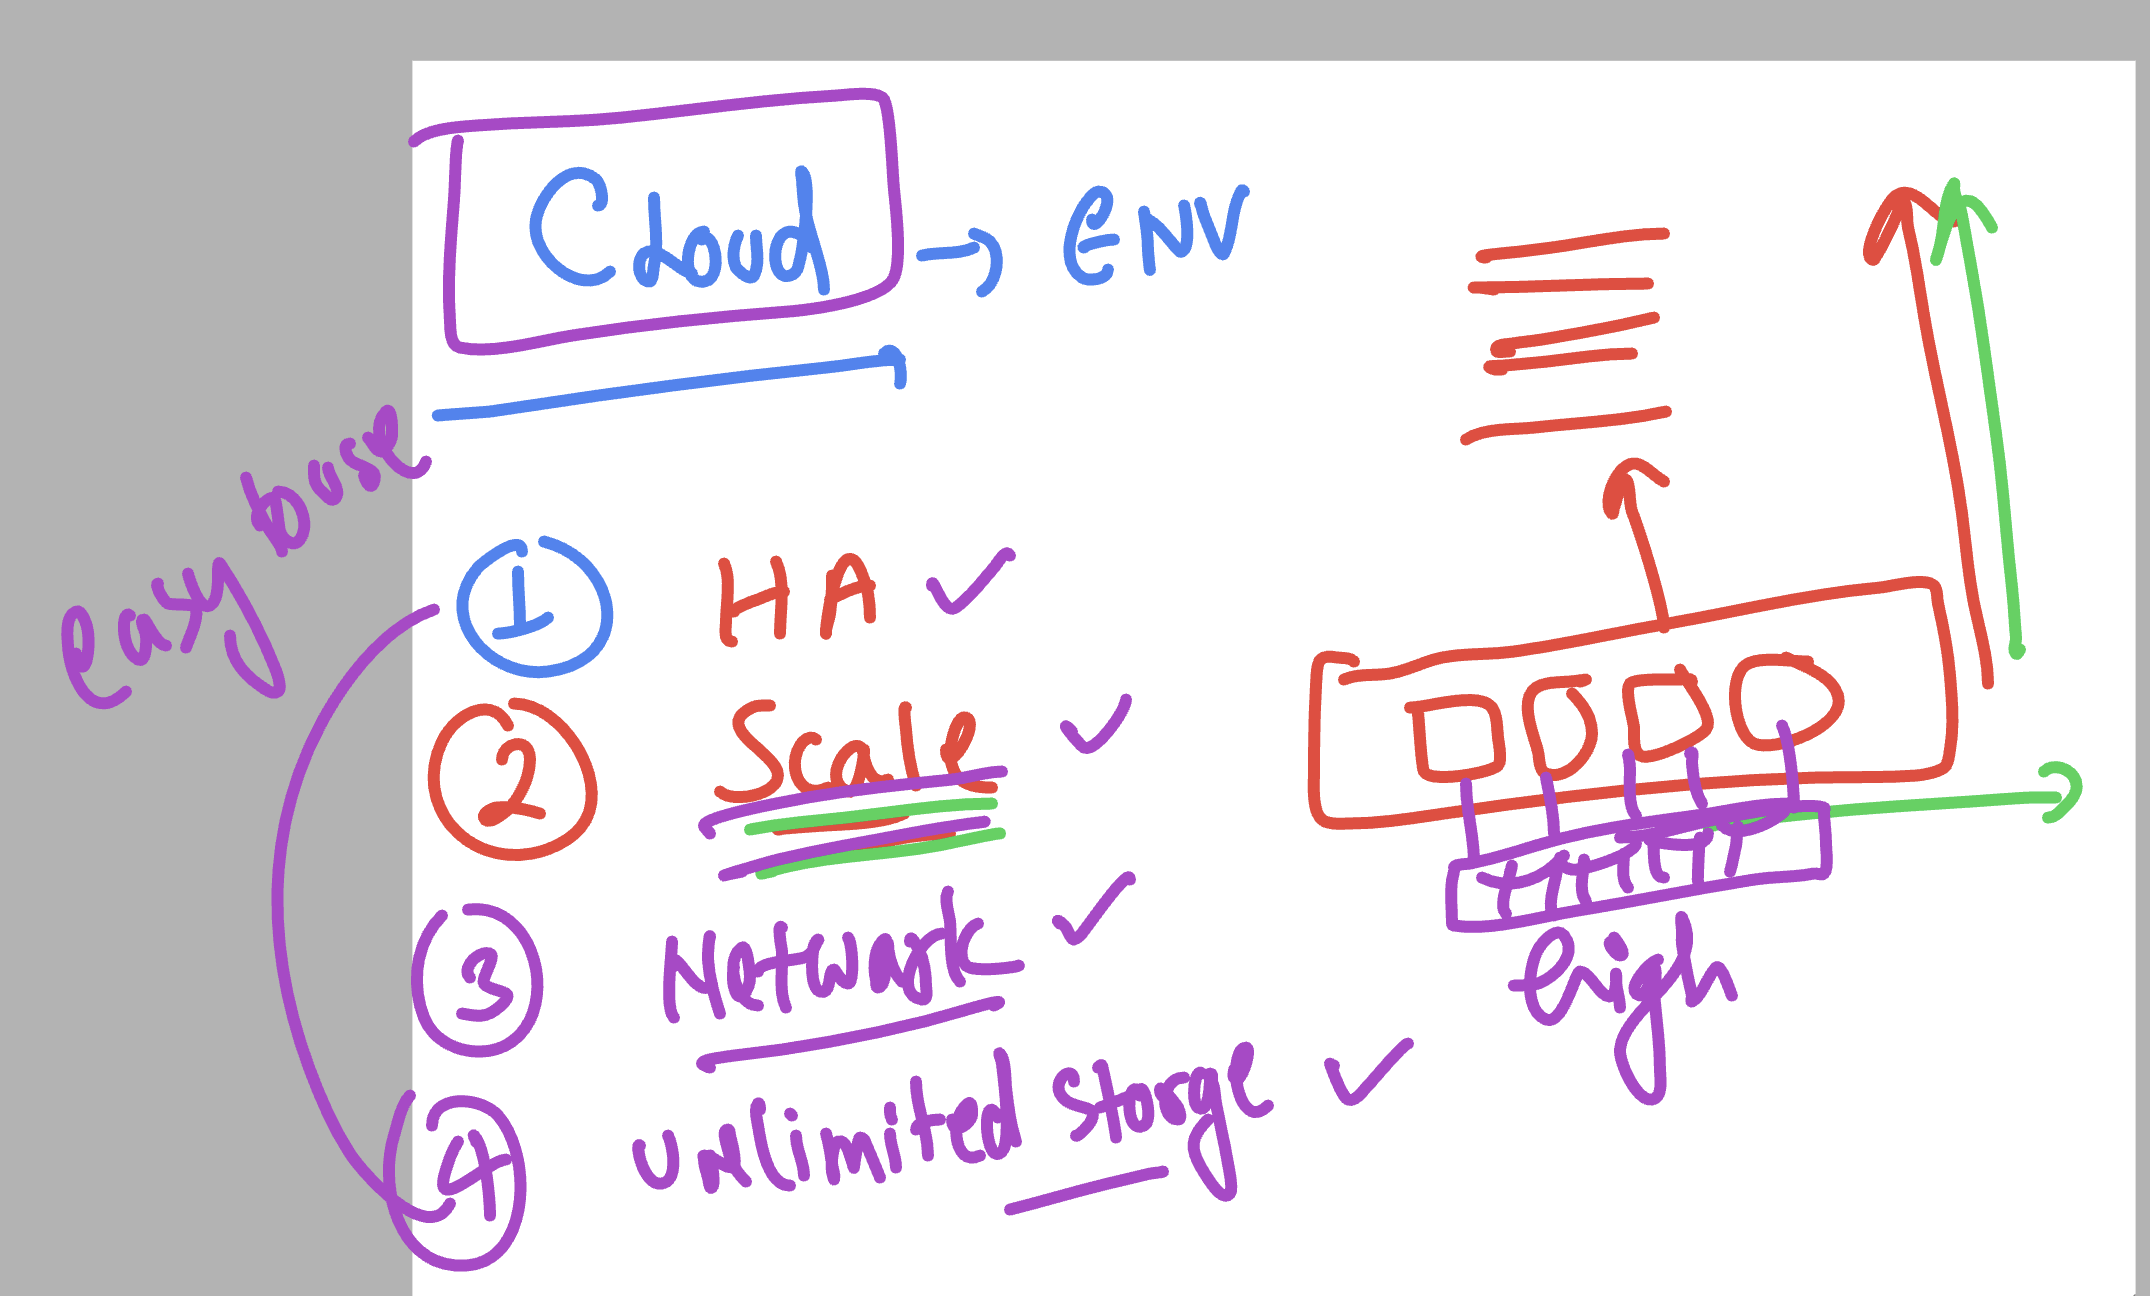 Cloud → ENV
easy to use
1 HA ✓
2 Scale ✓
3 Network ✓
high
4 unlimited storge ✓